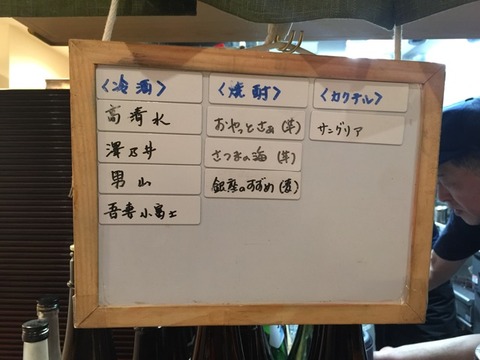 <冷酒>
高清水
澤乃井
男山
吾妻小富士
<焼酎>
おやっとさぁ(芋)
さつまの海(芋)
銀座のすずめ(麦)
<カクテル>
サングリア